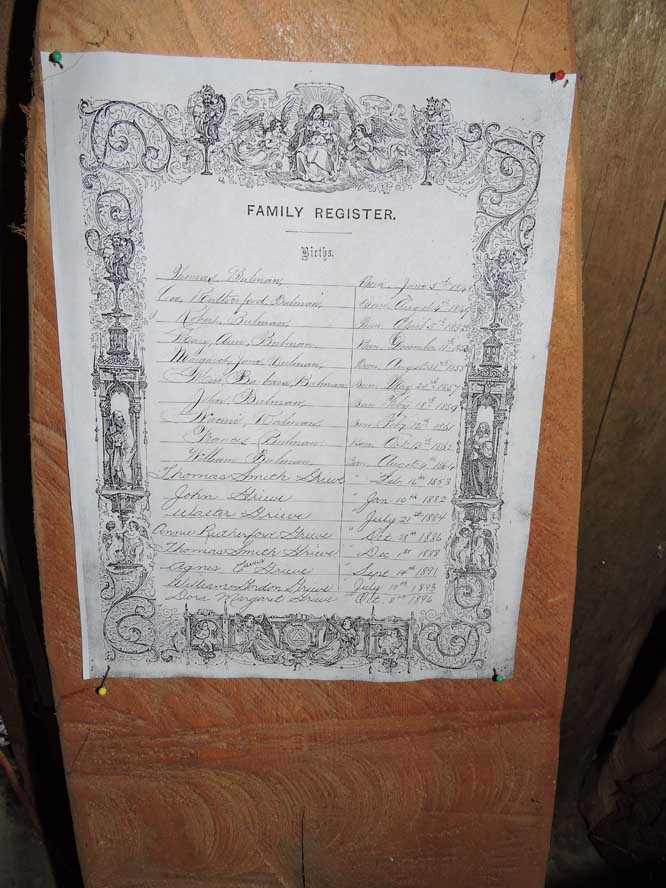 FAMILY REGISTER.
Births.
Thomas Bulman, Born June 5th
Rutherford Bulman, Born August 4th
Robert Bulman, Born April 5th
Mary Ann Bulman Born December 11th
Margaret Jane Bulman, Born August 1855
Bulman Born May 20th 1857
John Bulman, Born Feby 18th 1859
Naomi Bulman Born Feby 12th 1861
Francis Bulman Born Oct. 13th 1862
William Bulman Born August 9th 1864
Thomas Smith Grieve " Feb. 16th 1853
John Grieve " Jan 10th 1882
Walter Grieve " July 21st 1884
Annie Rutherford Grieve " Oct 28th 1886
Thomas Smith Grieve " Dec 1st 1888
Agnes Grieve " Sept 14th 1891
William Gordon Grieve " July 1893
Dora Margaret Grieve " 8th 1896